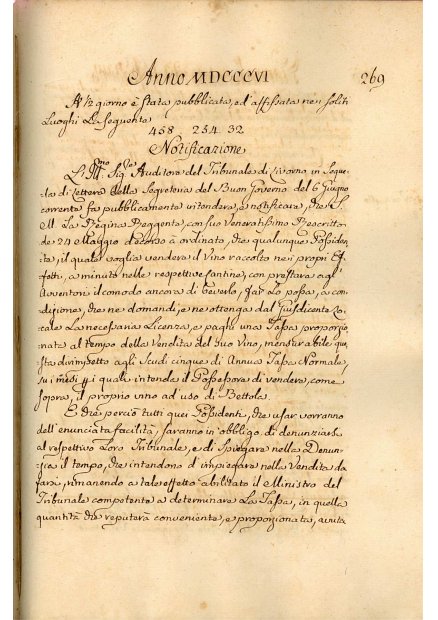 Anno MDCCCVI 269
A' 12 giorno è stata pubblicata, ed affissata nei soliti
Luoghi La seguente
458 254 32
Notificazione
L'Ill.mo Sig.re Auditore del Tribunale di Livorno in Seque-
la di Lettera della Segreteria del Buon Governo del 6 Giugno
corrente fa pubblicamente intendere, e notificare, che S.
M. La Regina Reggente, con suo Veneratissimo Rescritto
de 24 Maggio decorso à ordinato, che qualunque Possiden-
te, il quale voglia vendere il Vino raccolto nei propri Ef-
fetti, a minuto nelle respettive Cantine, con prestare agl'
Avventori il comodo ancora di beverlo, far Lo possa, a con-
dizione, che ne domandi, e ne ottenga dal Giusdicente Lo-
cale La necessaria Licenza, e paghi una Tassa proporzio-
nata al tempo della Vendita del suo Vino, menstrabile que-
sta di rimpetto agli Scudi cinque di Annua Tassa Normale,
su i mesi p i quali intenda il Possessore di vendere, come
sopra, il proprio vino ad uso di Bettola.
E che perciò tutti quei Possidenti, che usar vorranno
dell'enunciata facilità, saranno in obbligo di denunziarsi
al respettivo Loro Tribunale, e di Spiegare nella Denun-
zia il tempo, che intendono d'impiegare nella Vendita da
farsi, rimanendo a tale effetto abilitato il Ministro del
Tribunale competente a determinare La Tassa, in quella
quantità che reputerà conveniente, e proporzionata, avuta